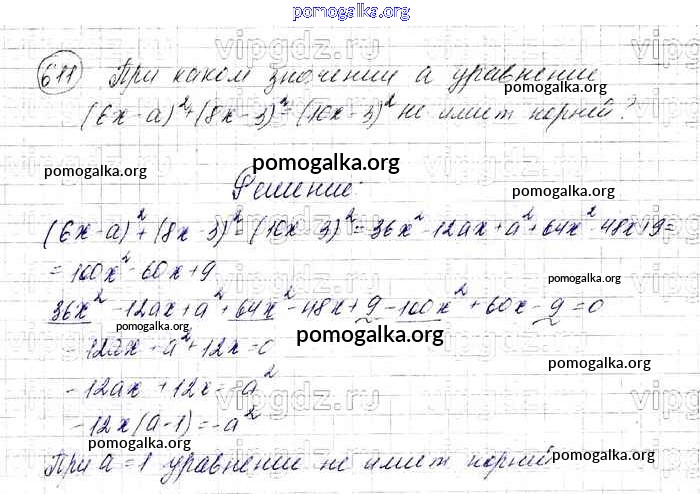 pomogalka.org
611 При каком значении а уравнении
pomogalka.org
(6x-а)²+(8x-3)²=(10x-3)² не имеет корней?
pomogalka.org
Решение:
pomogalka.org
(6x-а)²+(8x-3)² (10x-3)²=36x²-12ax+a²+64x²-48x+9=
=100x²-60x+9
pomogalka.org
36x²-12ax+a²+64x²-48x+9-100x²+60x-9=0
pomogalka.org
pomogalka.org
-12ax+a²+12x=0
pomogalka.org
-12ax+12x=-a²
-12x(a-1)=-a²
pomogalka.org
При а=1 уравнение не имеет корней
pomogalka.org
vipgdz.ru